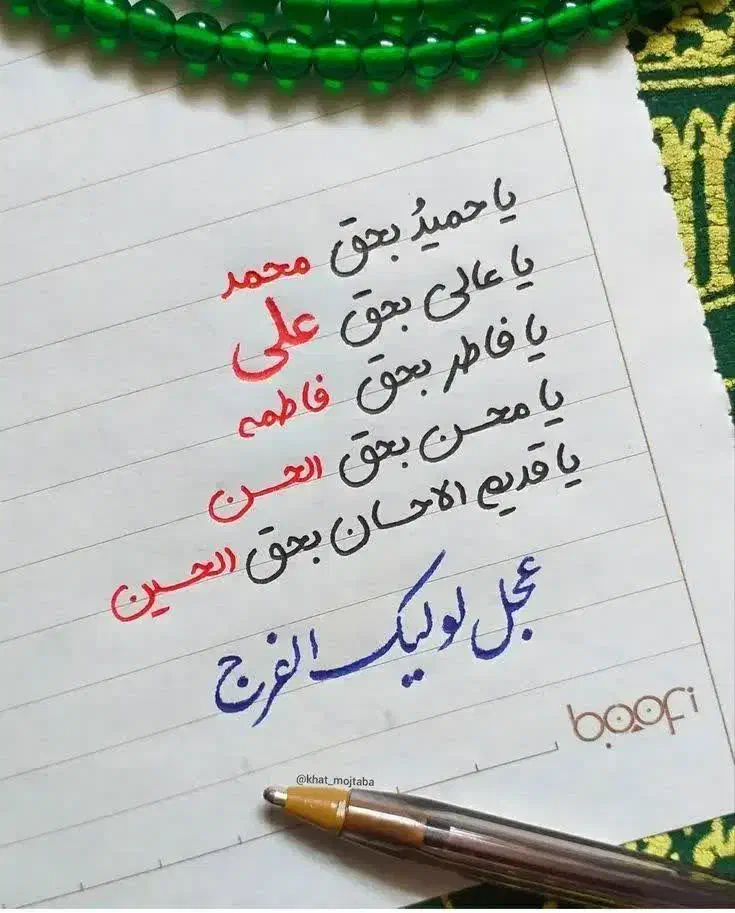 یا حمیدُ بحق محمد
یا عالی بحق علی
یا فاطر بحق فاطمه
یا محسن بحق الحسن
یا قدیم الاحسان بحق الحسین
عجل لولیک الفرج
boofi
@khat_mojtaba